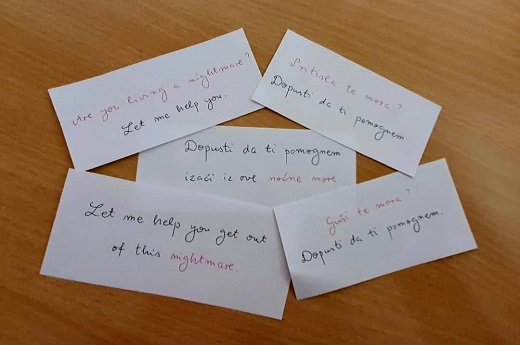 Are you living a nightmare?
Let me help you.
Pritisla te mora?
Dopusti da ti pomognem
Dopusti da ti pomognem
izaći iz ove noćne more
Let me help you get out
of this nightmare
Guši te mora?
Dopusti da ti pomognem.